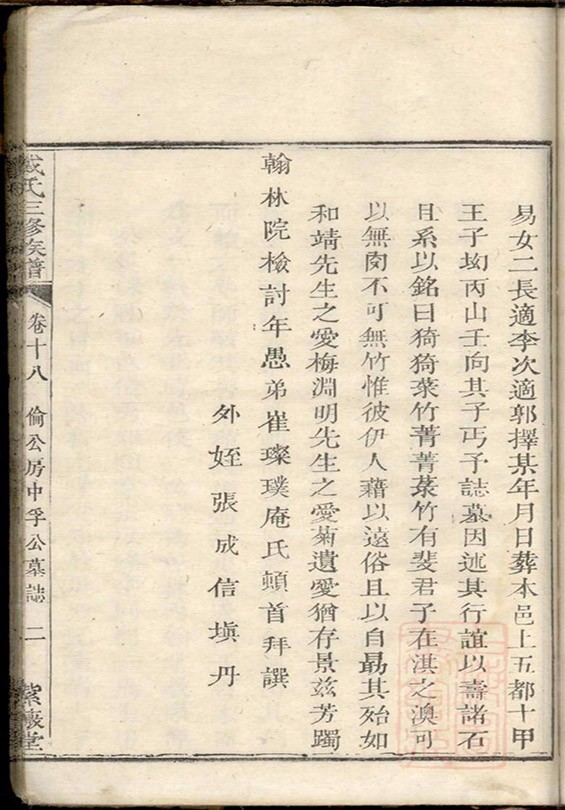 易女二長適李次適郭擇某年月日葬本邑上五都十甲
王子坳丙山壬向其子丐予誌墓因述其行誼以壽諸石
且系以銘曰猗猗菉竹菁菁菉竹有斐君子在淇之澳可
以無肉不可無竹惟彼伊人藉以遠俗且以自勗其殆如
和靖先生之愛梅淵明先生之愛菊遺愛猶存景茲芳躅
翰林院檢討年愚弟崔璨璞庵氏頓首拜譔
外姪張成信塡丹
氏三修族譜
卷十八
倫公房中孚公墓誌
二
紫懷堂